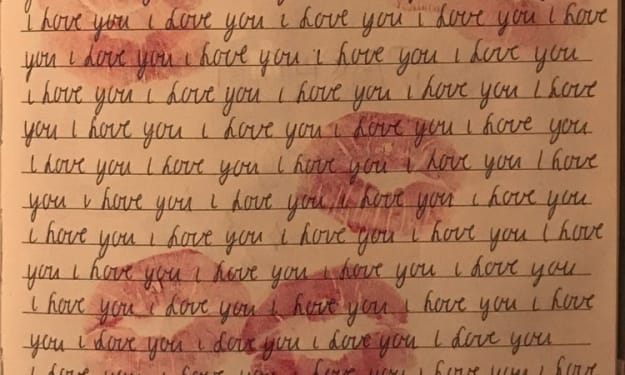 i love you i love you i love you i love you i love
you i love you i love you i love you i love you
i love you i love you i love you i love you i love
you i love you i love you i love you i love you
i love you i love you i love you i love you I love
you i love you i love you i love you i love you
i love you i love you i love you i love you I love
you i love you i love you i love you i love you
i love you i love you i love you i love you i love
you i love you i love you i love you i love you
i love you i love you i love you i love you i love